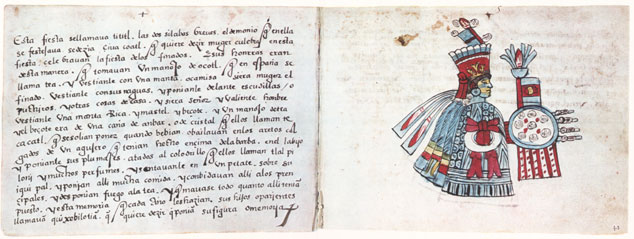 Esta fiesta se llamava tititl, las dos silabas breves. el demonio q̃ en ella
se festejava se dezia çiua coatl. q̃ quiere dezir muger culebra en esta
fiesta çelebravan la fiesta de los finados. Esus honrras eran
desta manera. q̃ tomavan Un manojo de ocotl. q̃ en españa se
llama tea. y Vestianle con Una manta. o camisa q̃ si era muger el
finado. Vestianle con sus naguas. y ponianle delante escudillas /o
pucheros. y otras cosas de casa. y si era señor y valiente hombre.
Vestianle Una manta Rica. y mastel. y beçote. y Un manojo
yel beçote era de Una caña de anbar. o de cristal q̃ ellos llaman te
ca catl. q̃ se solian poner quando bebian o bailavan en los aretos col
gados de Un agujero q̃ tenian hecho encima de la barba. en el labyo
y ponianle sus plumajes. atados al colodrillo q̃ ellos llaman tlal pi
lonj y muchos perfumes. y sentavante en Un petate. sobre su
iqui pal. y ponjan alli mucha comida. y conbidavan alli a los prin
cipales. y desponian fuego ala tea. y quemavase todo quanto alli tenian
puesto. y esta memoria q̃ cada Año los hazian. sus hijos o parientes
llamavan quixebilotian. q̃ quiere dezir q̃ ponia su figura o